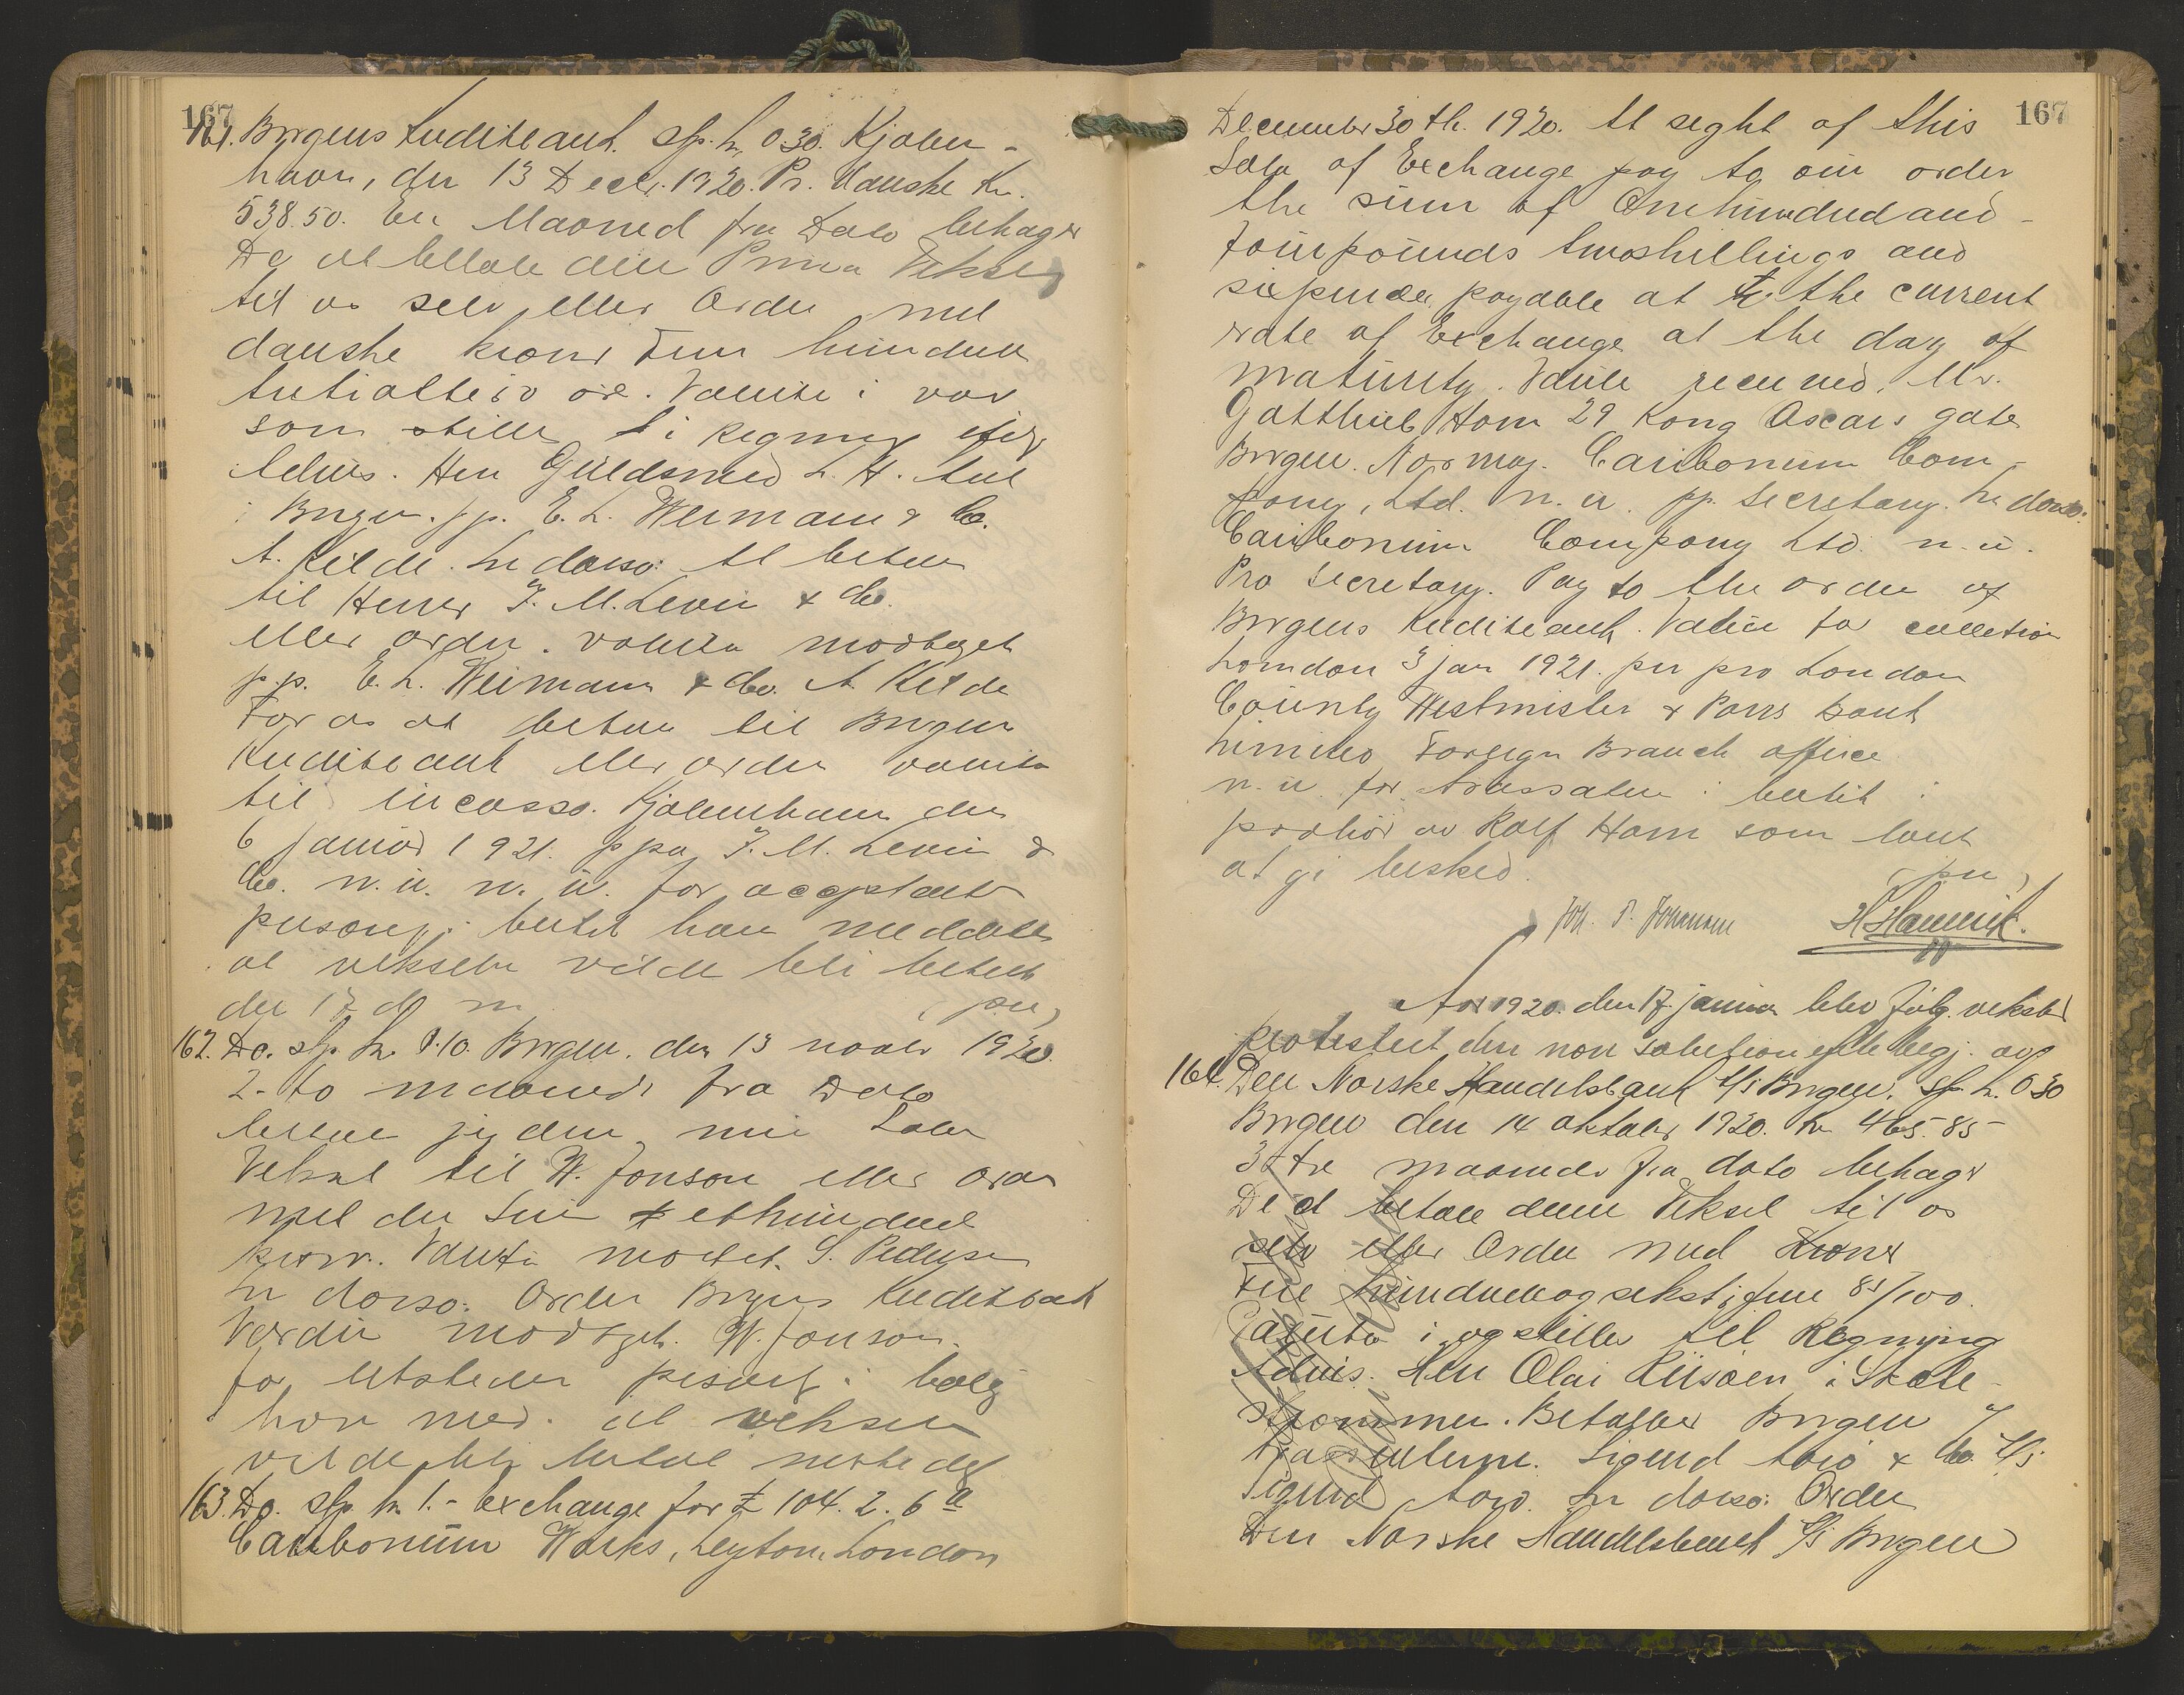 167
161. Bergens Kreditbank. Sfp. kr. 0.30. Kjøben-
havn, den 13 Decbr. 1920. Pr. danske Kr.
538.50. En Maaned fra Dato behager
De at betale denne Prima Veksel
til os selv eller Ordre med
danske kroner Fem hundrede
50 øre. Valuta i var
som stilles i Regning ifølge
Advis. Herr Guldsmed L. H.
i Bergen. pp. E. L. Weimann & Co.
A. Kilde. In dorso: At betale
til Herrer F. M. Levin & Co.
eller ordre. valuta modtaget
p.p. E. L. Weimann & Co. A. Kilde
For os at betale til Bergens
Kreditbank eller ordre valuta
til incasso. Kjøbenhavn den
6 januar 1921. ppa F. M. Levin &
Co. n. u. n. u. for acceptanten
personlig: hertil han meddelte
at vekselen vilde bli betalt
den 17 d. m. (fri)
162. Do. sfp. kr. 0.10. Bergen. den 13 novbr 1920.
2 - to maaneder fra Dato
betaler jeg denne min Sola
Veksel til W. Jonson eller ordre
med den Sum ethundrede
kroner. Valuta modtat. S. Pedersen
In dorso: Ordre Bergens Kreditbank
Værdi modtaget. W. Jonson.
for utstederen personlig: bolig
hvor med. at vekselen
vilde bli betalt neste dag
163. Do. sfp. kr 1.- Exchange for £ 104. 2. 6 d
Caribonum Works, Leyton, London
167
December 30 th. 1920. At sight of this
Sola of Exchange pay to our order
the sum of Onehundred and -
fourpounds twoshillings and
sixpence payable at the current
rate of Exchange at the day of
maturity. Value received. Mr.
Gottlieb Horn 29 Kong Oscars gate
Bergen. Norway. Caribonum Com-
pany, Ltd. n. u. pp. Secretary. In dorso:
Caribonum Company Ltd. n. u.
Pro Secretary. Pay to the order of
Bergens Kreditbank. Value for collection
London 3 jan 1921. per pro London
County Westmister & Parrs Bank
Limited Foreign Branch office
n. u. for trassaten: hertil:
prokur av Rolf Horn som lovet
at gi besked. (fri)
Joh. P. Johannesen
Aar 1920. den 17. januar blev følg. veksler
protestert den non solution efter begj. av
164. Den Norske Handelsbank A/S Bergen. Sfp. kr. 0 30
Bergen den 14 oktober 1920. kr 465.85
3 tre maaneder fra dato behager
De at betale denne Veksel til os
selv eller Ordre med Kroner
Fire hundredeogsekstifem 85/100.
Valuta i og stilles til Regning
Advis. Herr Olai Riisøen i Skaale-
strømmen. Betalbar Bergen
Trassentene. Sigurd & Co. A/S
Sigurd In dorso: Ordre
Den Norske Handelsbank A/S Bergen